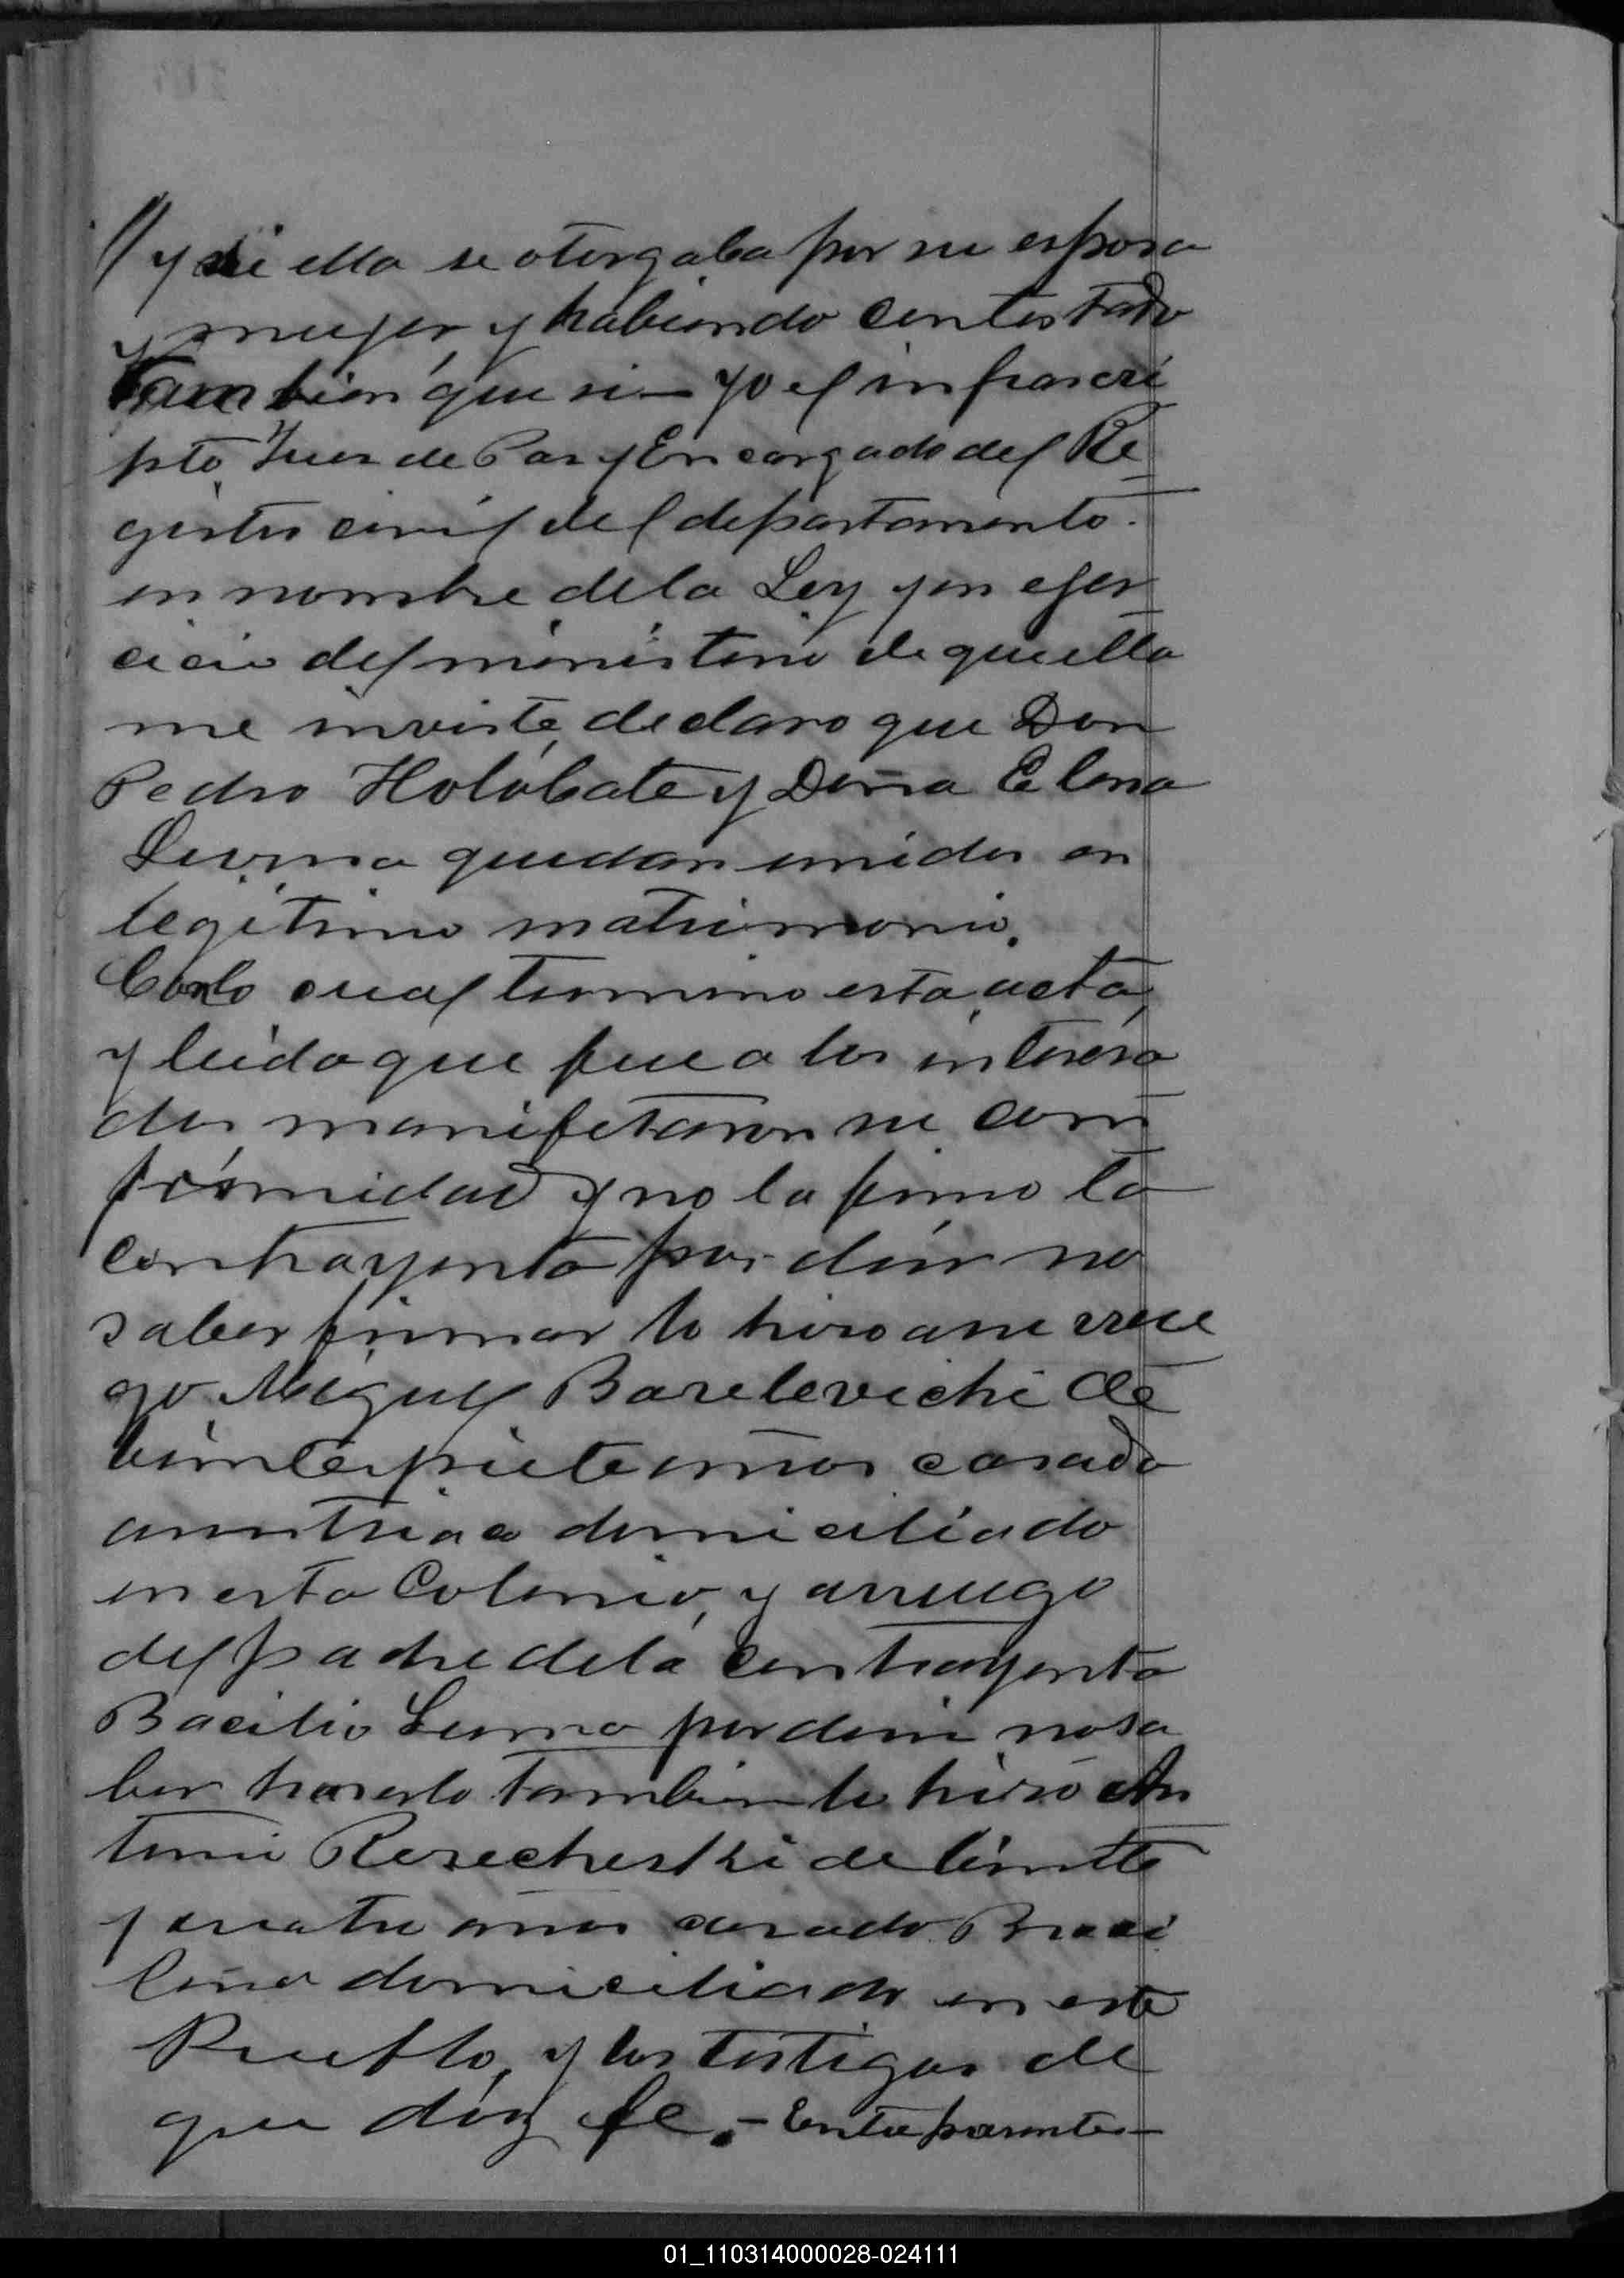 // y si ella se otorgaba por su esposa
y mujer y habiendo contestado
tambien que si - Yo el infrascri
pto Juez de Paz y Encargado del Re
gistro civil del departamento.
en nombre de la Ley y en ejer
cicio del ministerio de que ella
me inviste, declaro que Don
Pedro Holobate y Doña Elena
quedan unidos en
legitimo matrimonio.
Con lo cual termino esta acta,
y leida que fue a los interesa
dos manifetaron su con
fromidad y no la firmo la
contrayenta por decir no
saber firmar lo hizo a su rrue
go Miguel Barelevichi de
veinteysiete años casado
austriaco domiciliado
en esta Colonia, y arruego
del padre de la contrayenta
Bacilio por decir no sa
ber hacerlo tambien lo hizo An
tonio Resechestki de veinte
y cuatro años casado Brazi
leño domiciliado en este
Pueblo, y los testigos de
que dóy fe.- Entre parentes-
01_110314000028-024111